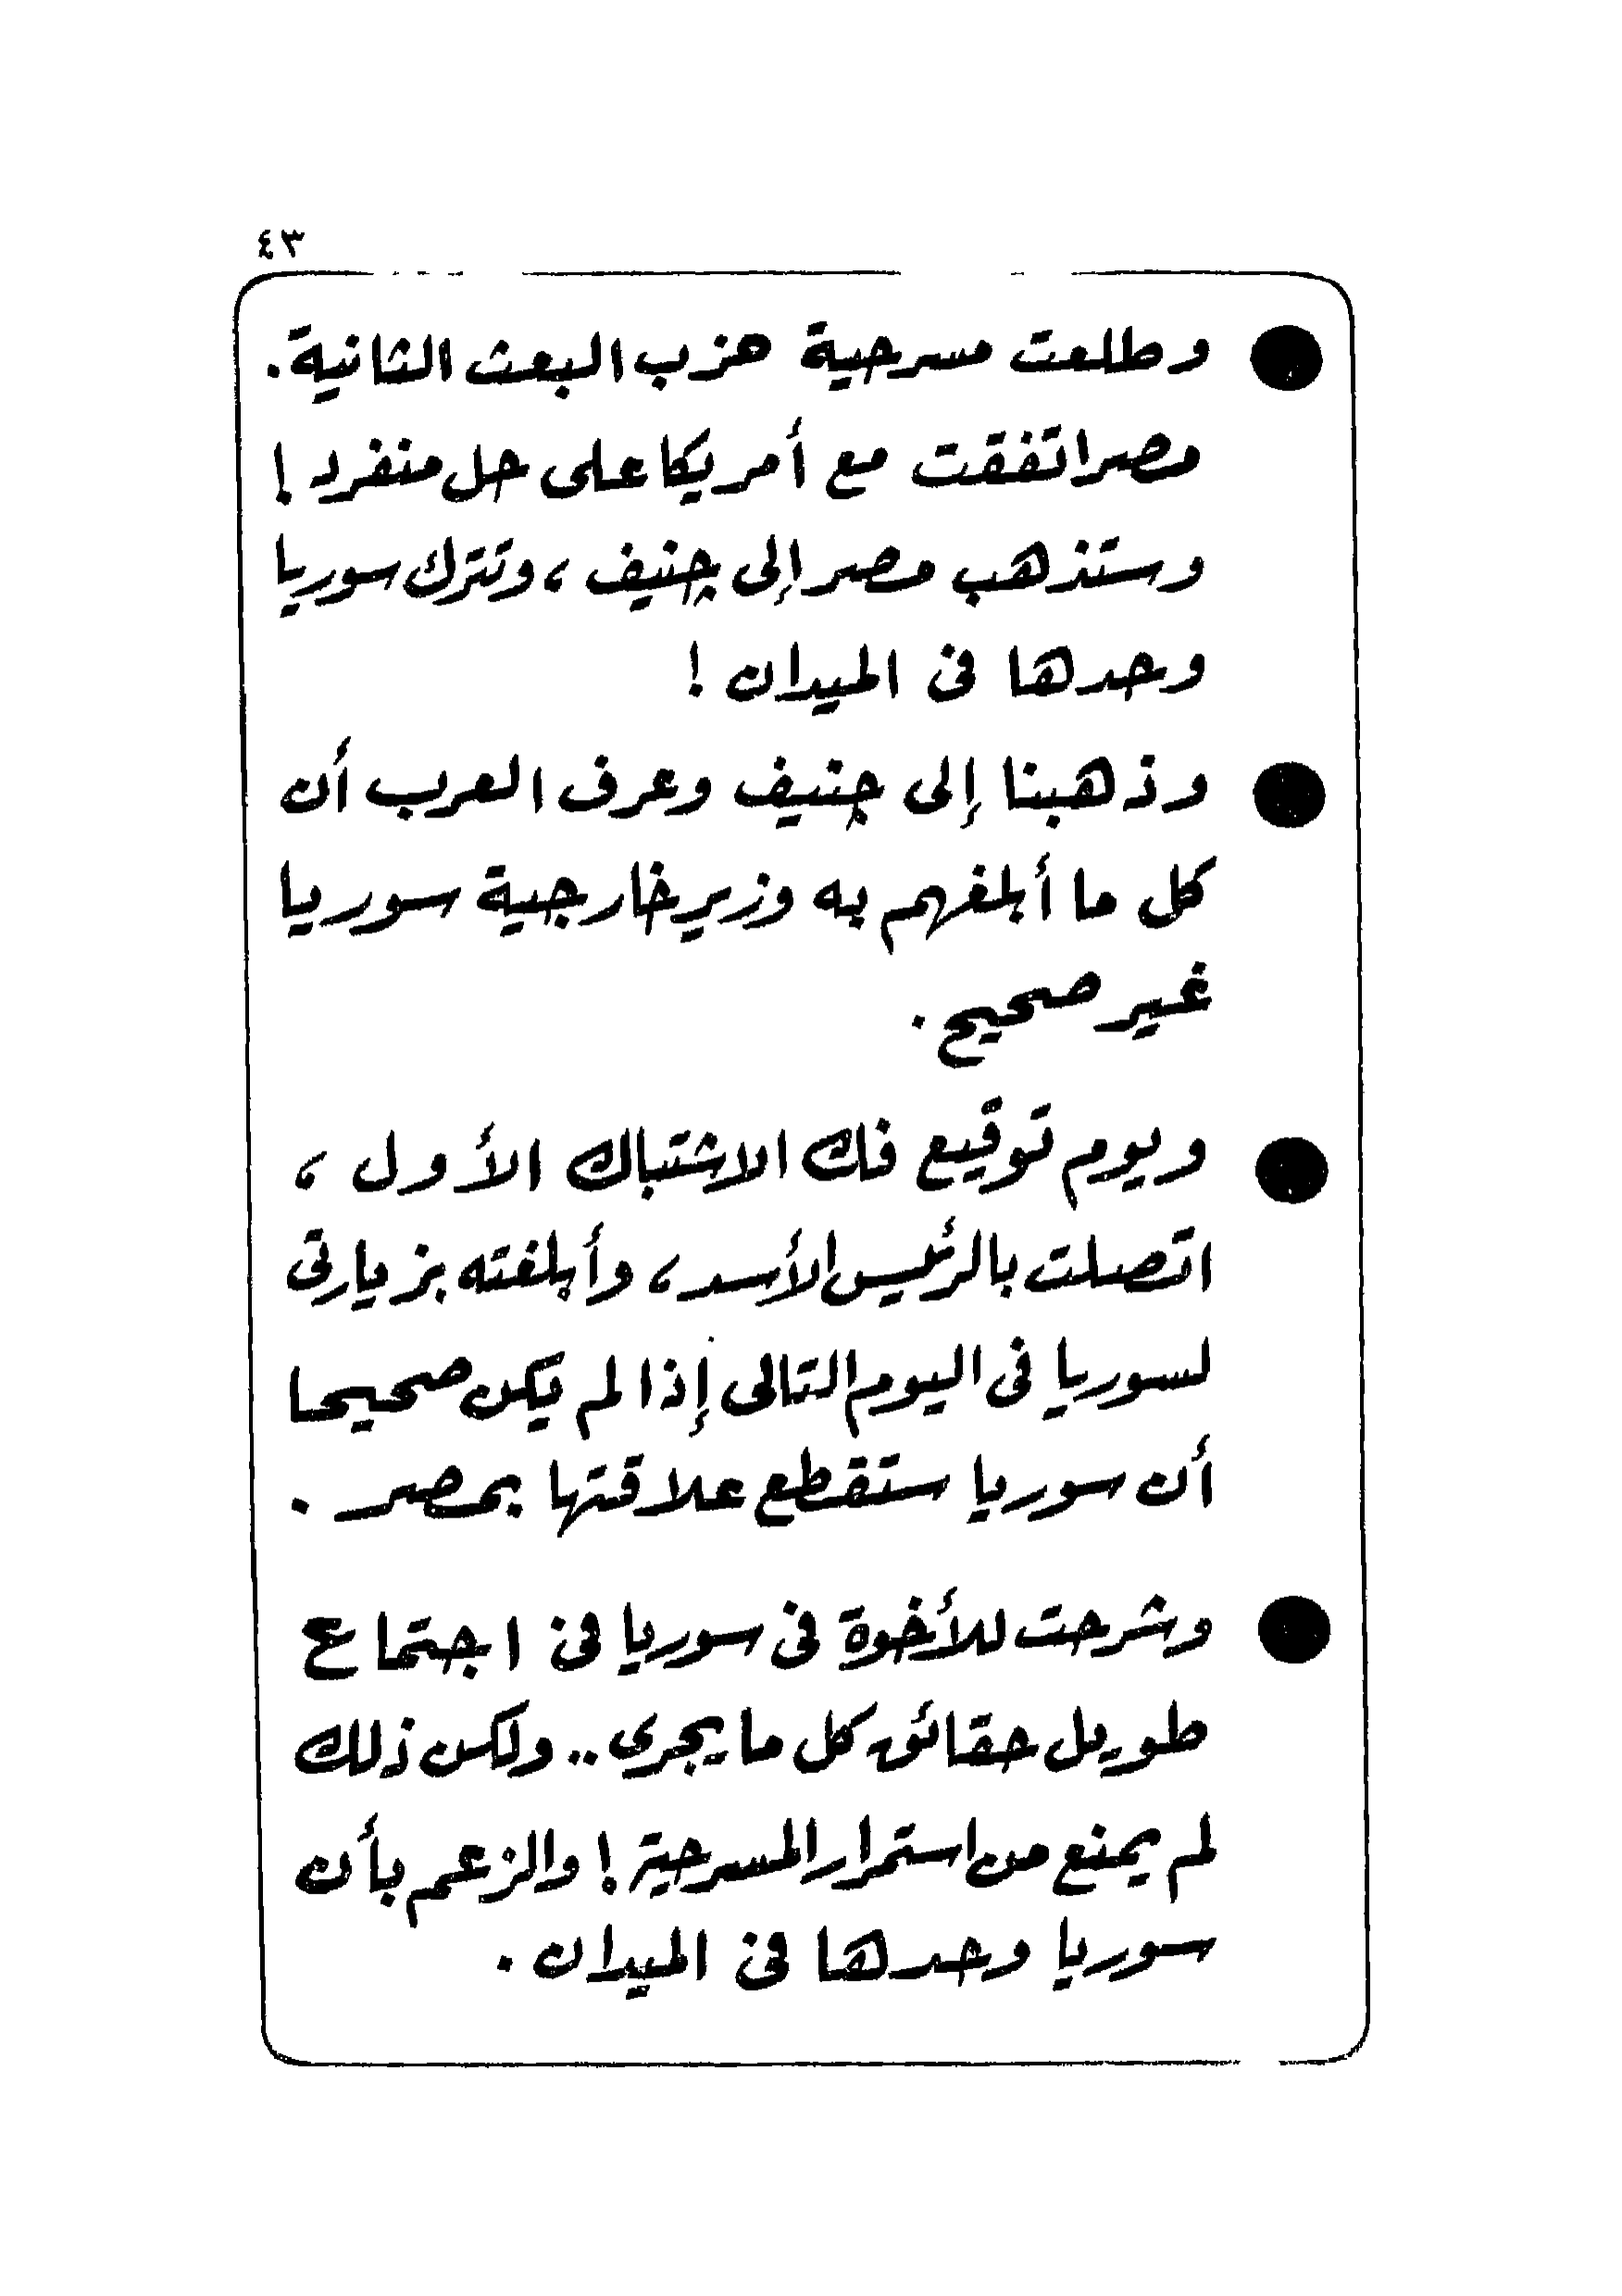 ٤٣
● وطلعت مسرحية حزب البعث الثانية.
مصر اتفقت مع أمريكا على حل منفرد !
وستذهب مصر إلى جنيف ، وتترك سوريا
وحدها فى الميدان !
● وذهبنا إلى جنيف وعرف العرب أن
كل ما أبلغهم به وزير خارجية سوريا
غير صحيح .
● ويوم توقيع فك الاشتباك الأول ،
اتصلت بالرئيس الأسد ، وأبلغته بزيارتى
لسوريا فى اليوم التالى إذا لم يكن صحيحا
أن سوريا ستقطع علاقتها بمصر .
● وشرحت للأخوة فى سوريا فى اجتماع
طويل حقائق كل ما يجرى .. ولكن ذلك
لم يمنع من استمرار المسرحية ! والزعم بأن
سوريا وحدها فى الميدان .